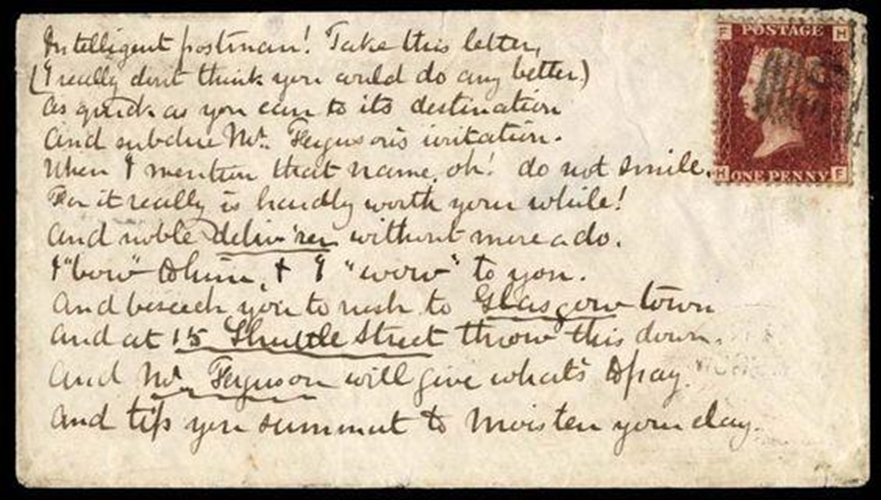 Intelligent postman! Take this letter,
(I really dont think you could do any better.)
As quick as you can to its destination
And subdue Mr. Ferguson's irritation.
When I mention that name, oh! do not smile.
For it really is hardly worth your while!
And noble deliv'rer without more ado.
I "bow" to him, & I "vow" to you.
And beseech you to rush to Glasgow town
And at 15 Shuttle Street throw this down.
And Mr. Ferguson will give what's to pay.
And tip you summut to moisten your clay.
F H
POSTAGE
ONE PENNY
H F